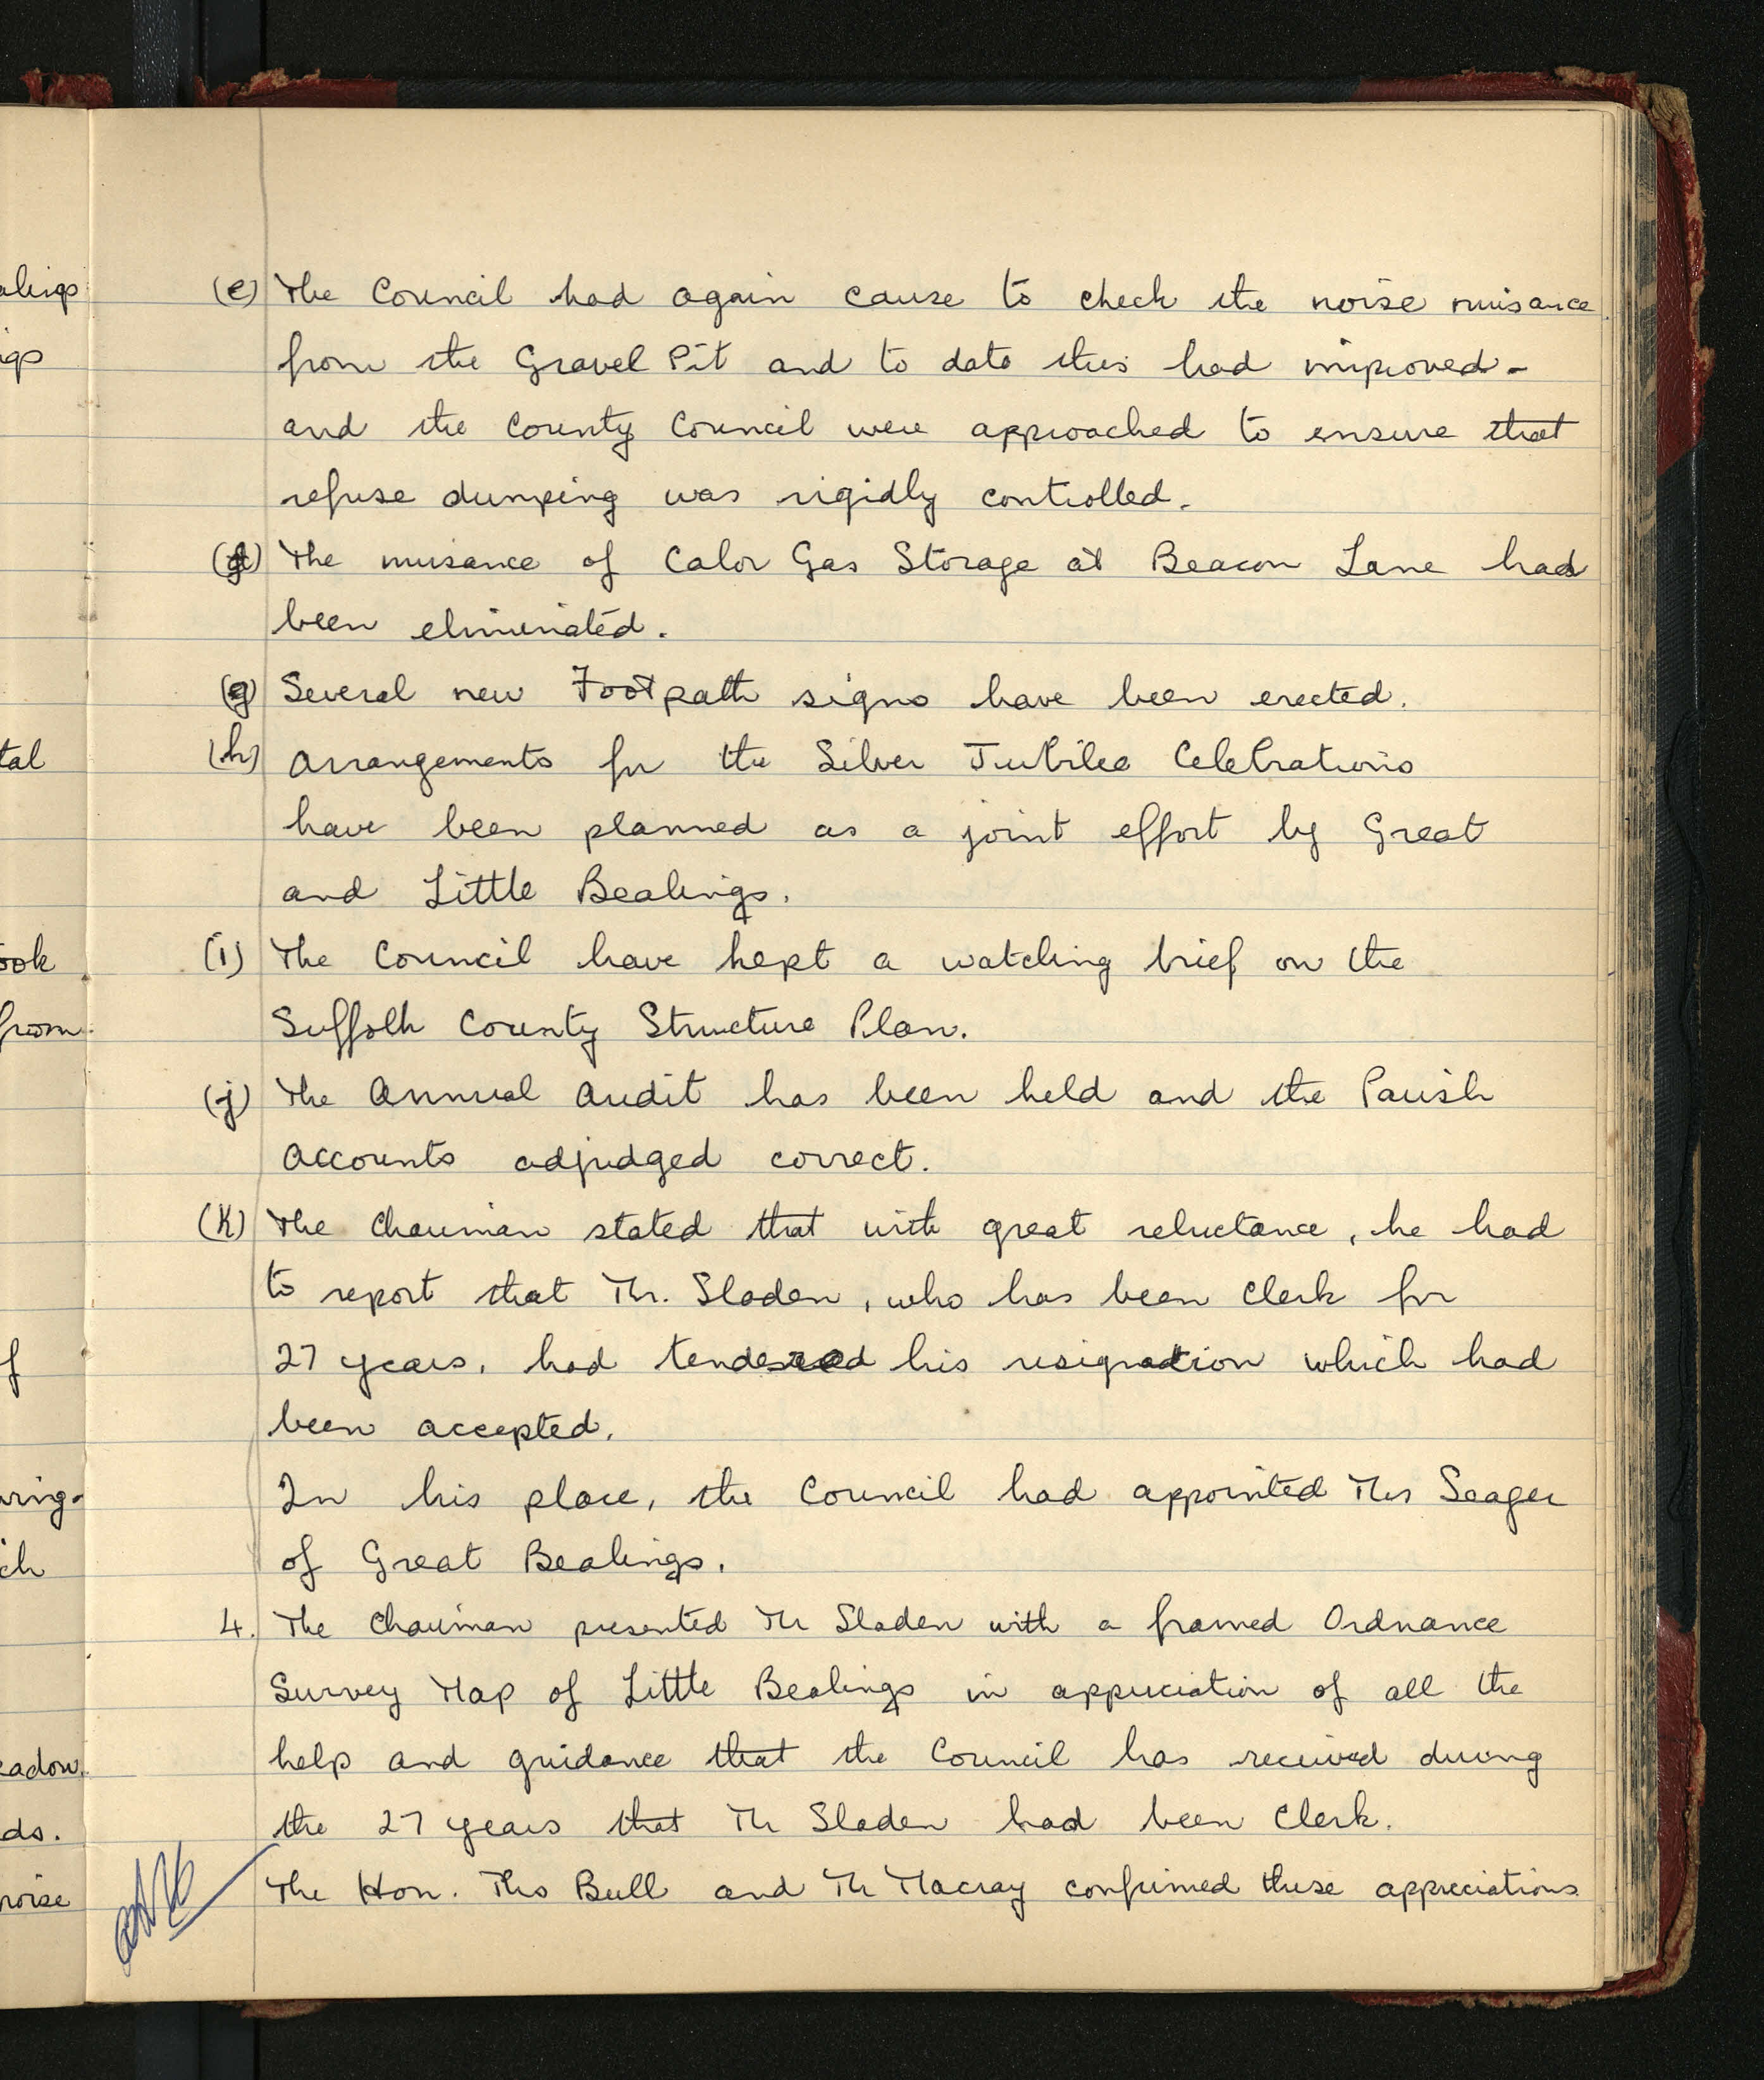 alings
ngs
tal
ook
from
f
ring.
ch
eadow.
ds.
noise
(e) The Council had again cause to check the noise nuisance
from the Gravel Pit and to date this had improved -
and the County Council were approached to ensure that
refuse dumping was rigidly controlled.
(f) The nuisance of Calor Gas Storage at Beacon Lane had
been eliminated.
(g) Several new Footpath signs have been erected.
(h) Arrangements for the Silver Jubilee Celebrations
have been planned as a joint effort by Great
and Little Bealings.
(i) The Council have kept a watching brief on the
Suffolk County Structure Plan.
(j) The Annual Audit has been held and the Parish
Accounts adjudged correct.
(k) The Chairman stated that with great reluctance, he had
to report that Mr. Sladen, who has been Clerk for
27 years, had tendered his resignation which had
been accepted.
In his place, the Council had appointed Mrs Seager
of Great Bealings.
4. The Chairman presented Mr Sladen with a framed Ordnance
Survey Map of Little Bealings in appreciation of all the
help and guidance that the Council has received during
the 27 years that Mr Sladen had been Clerk.
The Hon. Mrs Bull and Mr Macray confirmed these appreciations